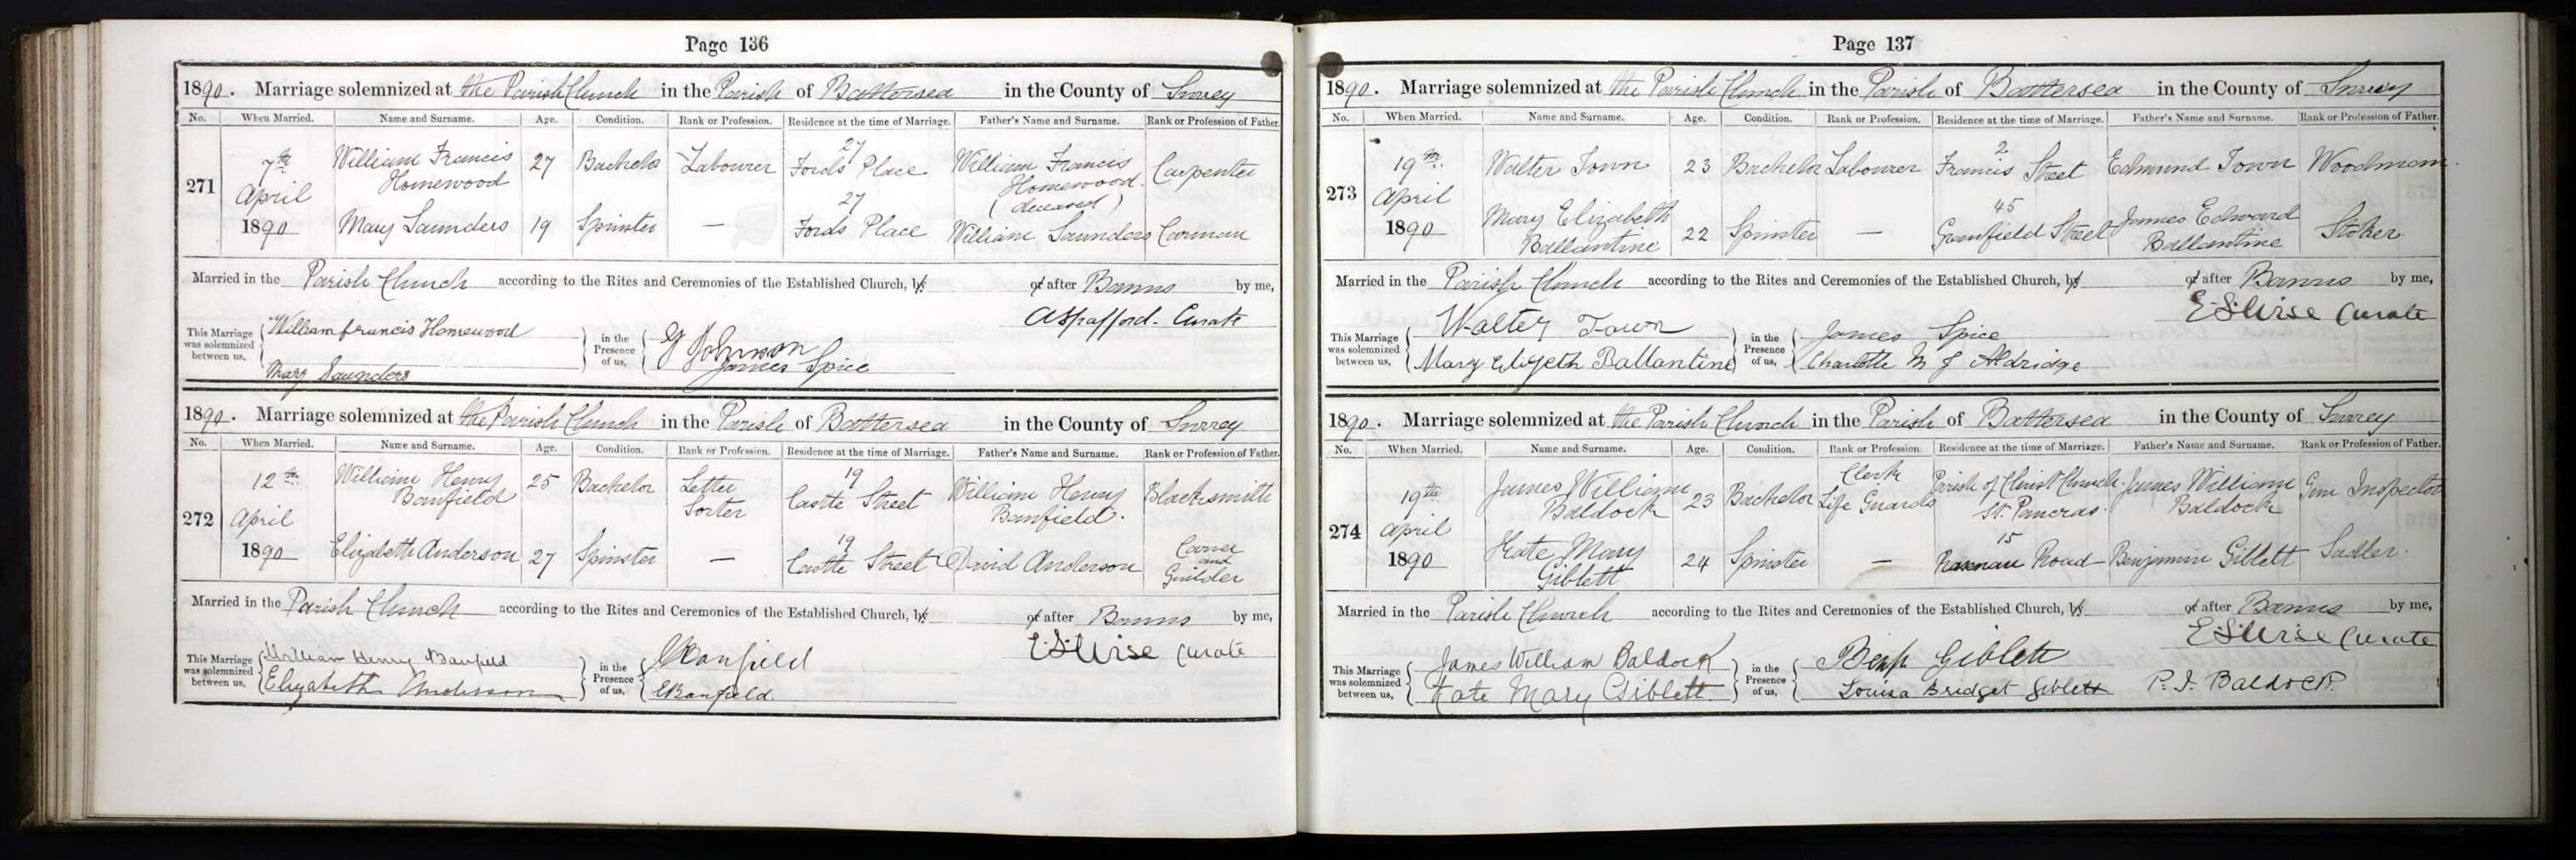 Page 136
1890. Marriage solemnized at the Parish Church in the Parish of Battersea in the County of Surrey
No. When Married. Name and Surname. Age. Condition. Rank or Profession. Residence at the time of Marriage. Father's Name and Surname. Rank or Profession of Father.
271 7th April 1890 William Francis Homewood 27 Bachelor Labourer 27 Fords Place William Francis Homewood (deceased) Carpenter
Mary Saunders 19 Spinster — 27 Fords Place William Saunders Carman
Married in the Parish Church according to the Rites and Ceremonies of the Established Church, by or after Banns by me,
Curate
This Marriage was solemnized between us, William francis Homewood Mary Saunders in the Presence of us, G Johnson James Spice
1890. Marriage solemnized at the Parish Church in the Parish of Battersea in the County of Surrey
No. When Married. Name and Surname. Age. Condition. Rank or Profession. Residence at the time of Marriage. Father's Name and Surname. Rank or Profession of Father.
272 12th April 1890 William Henry Banfield 25 Bachelor Letter Sorter 19 Castle Street William Henry Banfield. Blacksmith
Elizabeth Anderson 27 Spinster — 19 Castle Street David Anderson Carver and Guilder
Married in the Parish Church according to the Rites and Ceremonies of the Established Church, by or after Banns by me,
E. S. Wise Curate
This Marriage was solemnized between us, William Henry Banfield Elizabeth Anderson in the Presence of us, Banfield E Banfield.
Page 137
1890. Marriage solemnized at the Parish Church in the Parish of Battersea in the County of Surrey
No. When Married. Name and Surname. Age. Condition. Rank or Profession. Residence at the time of Marriage. Father's Name and Surname. Rank or Profession of Father.
273 19th April 1890 Walter Town 23 Bachelor Labourer 2 Francis Street Edmund Town Woodman.
Mary Elizabeth Ballantine 22 Spinster — 45 Street James Edward Ballantine Stoker.
Married in the Parish Church according to the Rites and Ceremonies of the Established Church, by or after Banns by me,
E. S. Wise Curate
This Marriage was solemnized between us, Walter Town Mary Ballantine in the Presence of us, James Spice Charlotte M J Aldridge
1890. Marriage solemnized at the Parish Church in the Parish of Battersea in the County of Surrey
No. When Married. Name and Surname. Age. Condition. Rank or Profession. Residence at the time of Marriage. Father's Name and Surname. Rank or Profession of Father.
274 19th April 1890 James William Baldock 23 Bachelor Clerk Life Guards Parish of Christ Church St. Pancras. James William Baldock Gun Inspector
Kate Mary Giblett 24 Spinster — 15 Road Benjamin Giblett Sadler.
Married in the Parish Church according to the Rites and Ceremonies of the Established Church, by or after Banns by me,
E. S. Wise Curate
This Marriage was solemnized between us, James William Baldock Kate Mary Giblett in the Presence of us, Benj. Giblett Louisa Bridget Giblett P. J. Baldock.